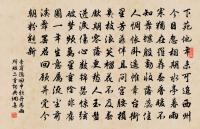 下苑他年未可追西州
今日忽相期水亭暮雨
寒猶在羅薦春香暖不
知舞蝶殷勤收落蕊有人
惆悵臥遙帷章臺街
里芳菲伴且問宮腰損
幾枝浪笑榴花不及春
先期零落更愁人玉盤
迸淚傷心數錦瑟驚弦
破夢頻萬里重陰非舊
圃一年生意屬流塵前
溪舞罷君回顧併覺今
朝粉態新
李商隱回中牡丹為雨
所敗二首